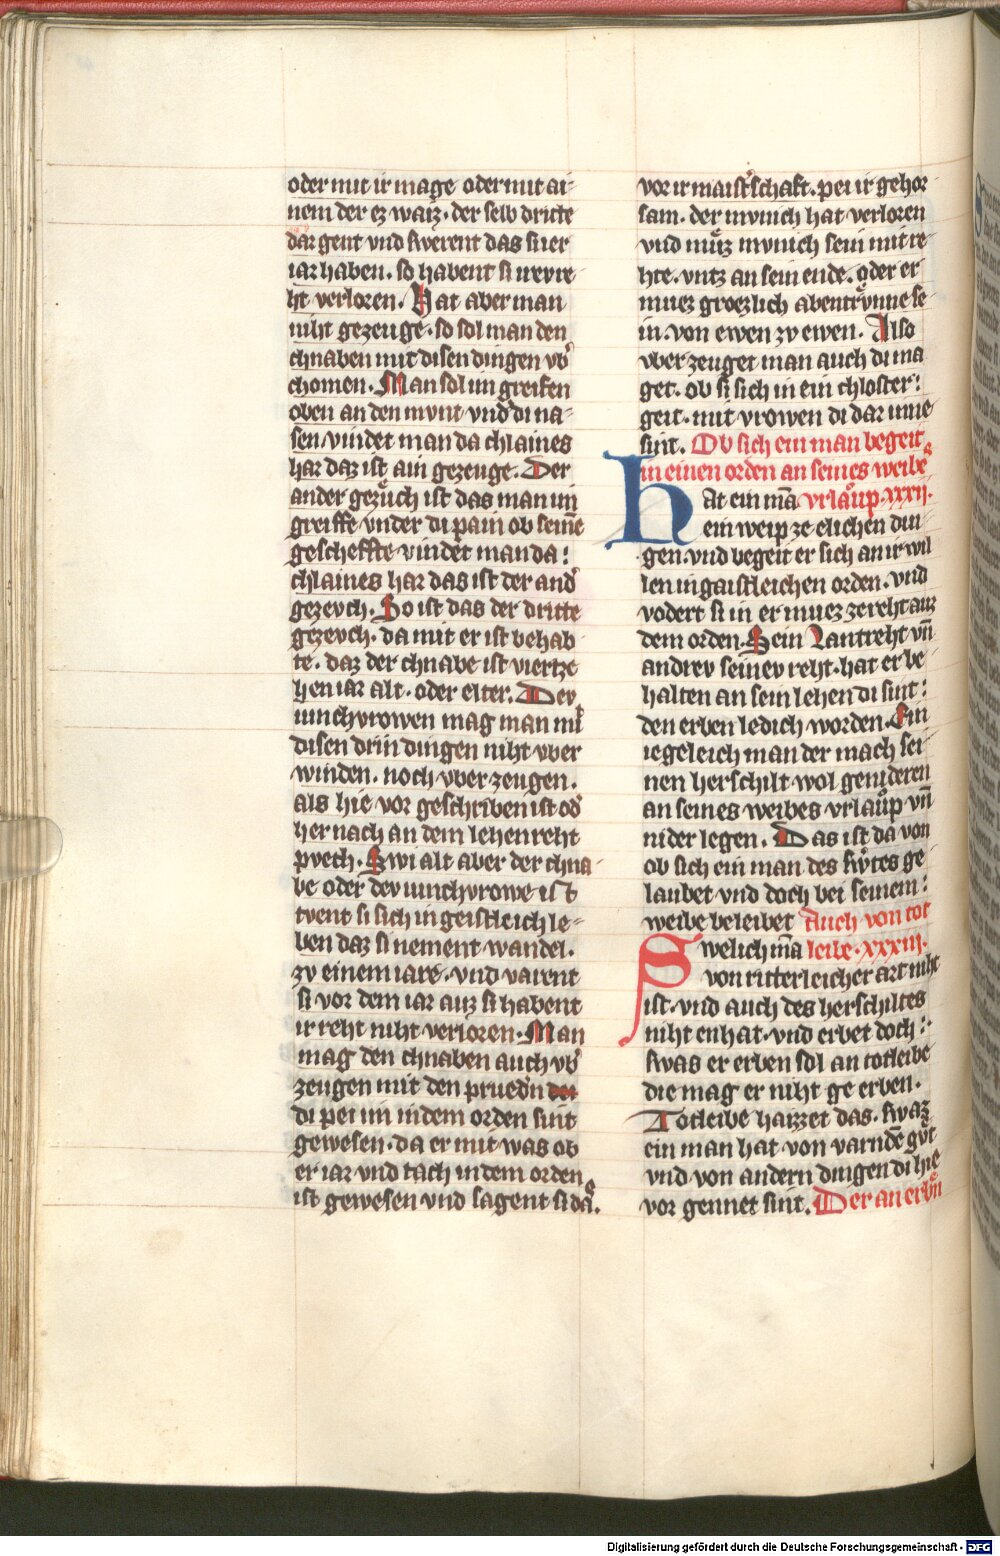 oder mit ir mage oder mit ai-
nem der ez waiz. der selb dritte
dar gent vnd swerent das si ier
iar haben. so habent si irev re-
ht verloren. Hat aber man
niht gezeuge. so sol man den
chnaben mit disen dingen vb̾
chomen. Man sol im greifen
oben an den mvnt vnd di na-
sen vindet man da chlaines
har daz ist ain gezeuge. Der
ander gezuͤch ist das man im
greiffe vnder di pain ob seinē
gescheffte vindet man da:
chlaines har das ist der and̾
gezevch. So ist das der dritte
gezevch. da mit er ist behab
te. daz der chnabe ist viertze
hen iar alt. oder elter. Dev
iunchvrowen mag man mit
disen drin dingen niht vber
winden. noch vber zeugen.
als hie vor geschriben ist od̾
her nach an dem lehenreht
pvech. Swi alt aber der chna-
be oder dev iunchvrowe ist
tvent si sich in geistleich le-
ben daz si nement wandel.
zv einem iare. vnd varent
si vor dem iar auz si habent
ir reht niht verloren. Man
mag den chnaben auch vb̾
zeugen mit den prued̾n
di pei im in dem orden sint
gewesen. da er mit was ob
er iar vnd tach in dem orden
ist gewesen vnd sagent si daz.
vor ir maist̾schaft. pei ir gehor
sam. der mvnich hat verloren
vnd muͤz mvnich sein mit re-
hte. vntz an sein ende. oder er
muez groezlich abentrvnne se-
in. von ewen zv ewen. Also
vber zeuget man auch di ma
get. ob si sich in ein chloster:
geit. mit vrowen di dar inne
sint. Ob sich ein man begeit
in einen orden an seines weibes
Hat ein mā vrlaup. xxxij.
ein weip ze elichen din
gen. vnd begeit er sich an ir wil
len in gaistleichen orden. vnd
vodert si in er muez ze reht auz
dem orden. Sein Lantreht vn̄
andrev seinev reht. hat er be
halten an sein lehen di sint:
den erben ledich worden. Ein
iegeleich man der mach sei
nen herschilt wol genideren
an seines weibes vrlaup vn̄
nider legen. Das ist da von
ob sich ein man des swͤrtes ge
laubet vnd doch bei seinem:
weibe beleibet Auch von tot
Swelich mā leibe. xxxiij.
von ritterleicher art niht
ist. vnd auch des herschiltes
niht enhat. vnd erbet doch:
swas er erben sol an totleibe
die mag er niht ge erben.
Totleibe haizzet das. swaz
ein man hat von varndē guͤt
vnd von andern dingen di hie
vor gennet sint. Der an erb̾n
Digitalisierung gefördert durch die Deutsche Forschungsgemeinschaft - DFG